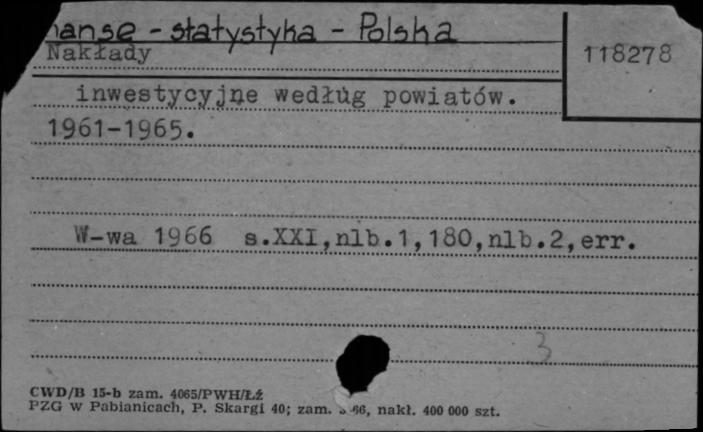 anse - statystyka - Polska
Nakłady
118278
inwestycyjne według powiatów.
1961-1965.
W-wa 1966 s.XXI,nlb.1,180,nlb.2,err.
3
CWD/B 15-b zam. 4065/PWH/Łź
PZG w Pabianicach, P. Skargi 40; zam. 66, nakł. 400 000 szt.